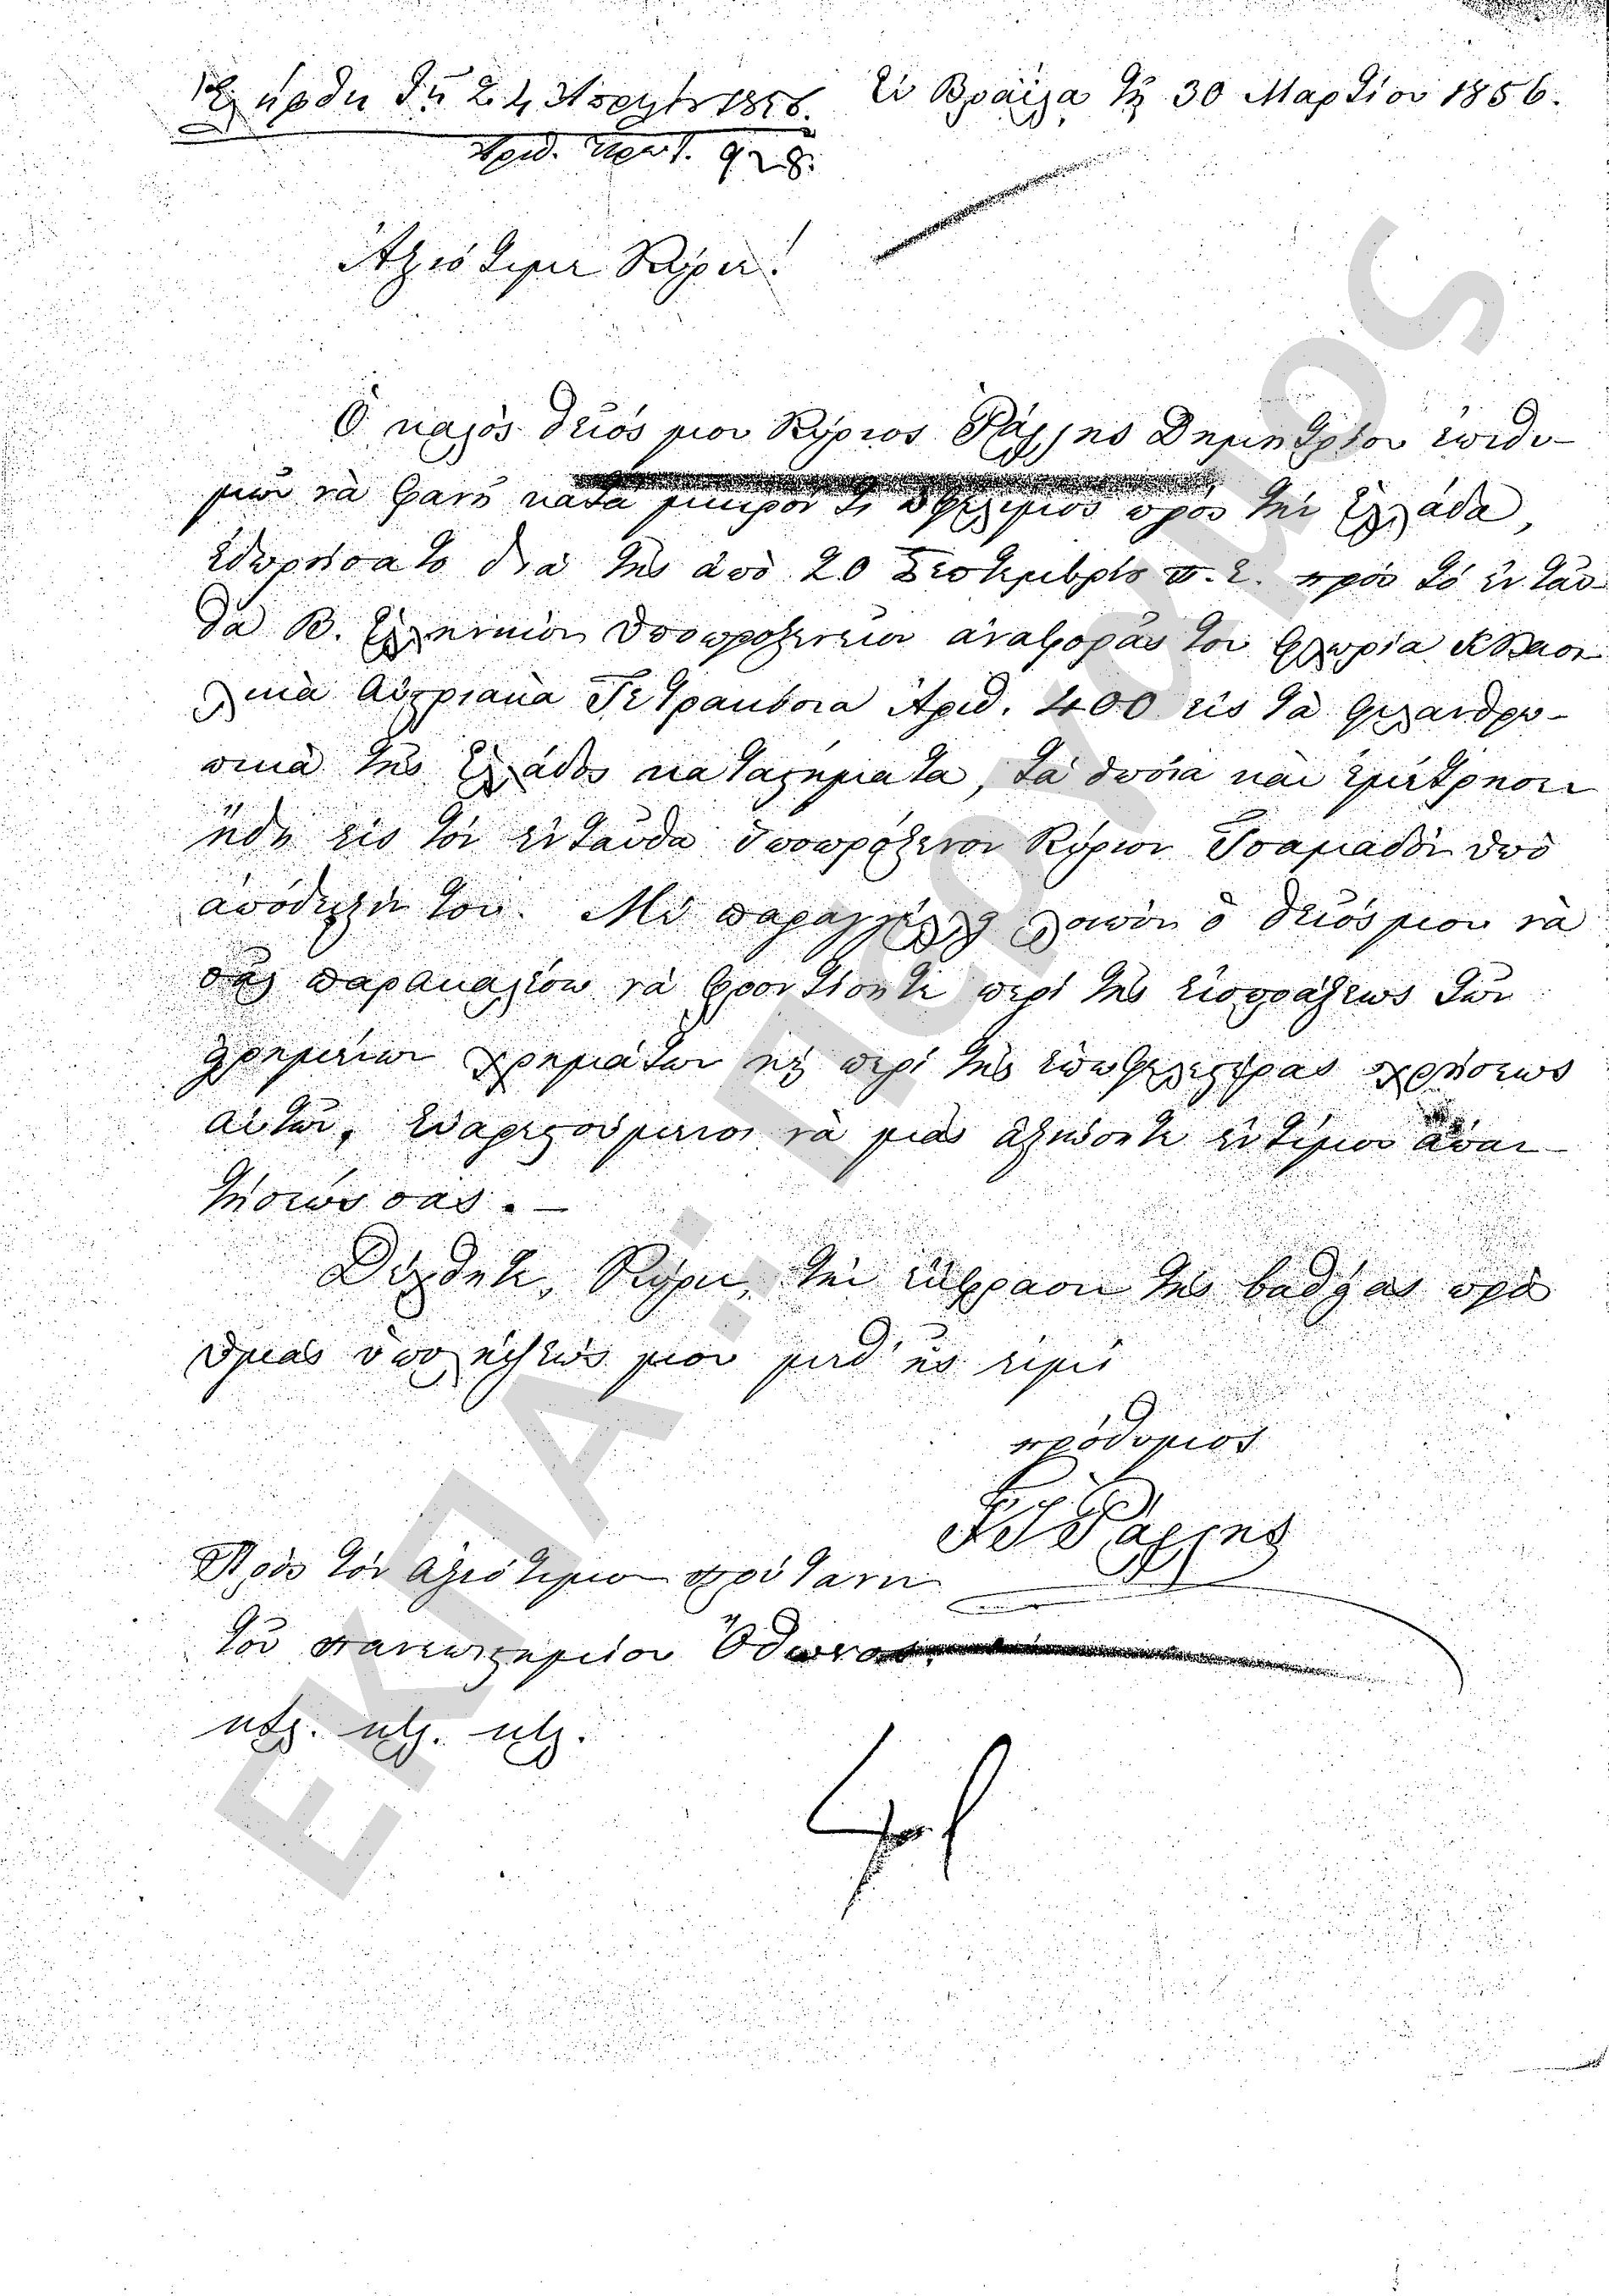 Ἐλήφθη τῇ 24 1856. Ἐν Βραΐλᾳ τῇ 30 Μαρτίου 1856.
Ἀριθ. Πρωτ. 928.
Ἀξιότιμε Κύριε!
Ὁ καλὸς θεῖός μου Κύριος Ῥάλλης Δημητρίου ἐπιθυ-
μῶν νὰ φανῇ κατὰ μικρόν τι ὠφέλιμος πρὸς τὴν Ἑλλάδα,
ἐδωρήσατο διὰ τῆς ἀπὸ 20 Σεπτεμβρίου π. ἔ. πρὸς τὸ ἐνταῦ-
θα Β. Ἑλληνικὸν Ὑποπροξενεῖον ἀναφορᾶς του φλωρία Κ Βασι
λικὰ Αὐστριακὰ Τετράκοσια Ἀριθ. 400 εἰς τὰ φιλανθρω-
πικὰ τῆς Ἑλλάδος καταστήματα, τὰ ὁποῖα καὶ ἐμέτρησεν
ἤδη εἰς τὸν ἐνταῦθα ὑποπρόξενον Κύριον Τσαμαδὸν ὑπὸ
ἀπόδειξίν του. Μὲ παραγγέλλει λοιπὸν ὁ θεῖός μου νὰ
σᾶς παρακαλέσω νὰ φροντίσητε περὶ τῆς εἰσπράξεως τῶν
χρημάτων καὶ περὶ τῆς ἐπωφελεστέρας χρήσεως
αὐτῶν, εὐαρεστούμενοι νὰ μᾶς ἀξιώσητε ἐντίμου ἀπαν-
τήσεώς σας. —
Δέχθητε, Κύριε, τὴν ἔκφρασιν τῆς βαθείας πρὸς
ὑμᾶς ὑπολήψεώς μου μεθ' ἧς εἰμὶ
πρόθυμος
Ῥάλλης
Πρὸς τὸν ἀξιότιμον πρύτανιν
τοῦ πανεπιστημίου Ὄθωνος.
κτλ. κτλ. κτλ.
ΕΚΠΑ:: Πέργαμος